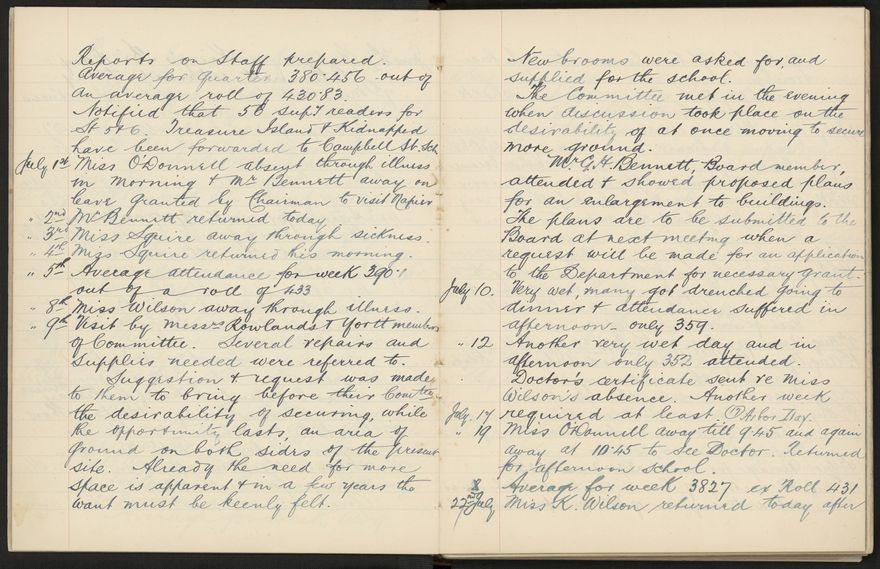 Reports on Staff prepared.
Average for quarter 380·456 out of
an average roll of 430·83.
Notified that 56 sup'l readers for
St 5 & 6. Treasure Island & Kidnapped
have been forwarded to Campbell St. Sch.
July 1st Miss O'Donnell absent through illness
in morning & Mr Bennett away on
leave granted by Chairman to visit Napier
" 2nd Mr Bennett returned today
" 3rd Miss Squire away through sickness.
" 4th Miss Squire returned this morning.
" 5th Average attendance for week 390·1
out of a roll of 433
" 8th Miss Wilson away through illness.
" 9th Visit by Messrs Rowlands & Yortt members
of Committee. Several repairs and
supplies needed were referred to.
Suggestion & request was made
to them to bring before their Comttee
the desirability of securing, while
the opportunity lasts, an area of
ground on both sides of the present
site. Already the need for more
space is apparent & in a few years the
want must be keenly felt.
New brooms were asked for, and
supplied for the school.
The Committee met in the evening
when discussion took place on the
desirability of at once moving to secure
more ground.
Mr G. H. Bennett, Board member,
attended & showed proposed plans
for an enlargement to buildings.
The plans are to be submitted to the
Board at next meeting when a
request will be made for an application
to the Department for necessary grant.
July 10. Very wet, many got drenched going to
dinner & attendance suffered in
afternoon – only 359.
" 12 Another very wet day and in
afternoon only 352 attended.
Doctor's certificate sent re Miss
Wilson's absence. Another week
July 17 required at least. Arbor Day.
" 19 Miss O'Donnell away till 9·45 and again
away at 10·45 to see Doctor. Returned
for afternoon school.
Average for week 382·7 ex Roll 431
22nd July Miss K. Wilson returned today after